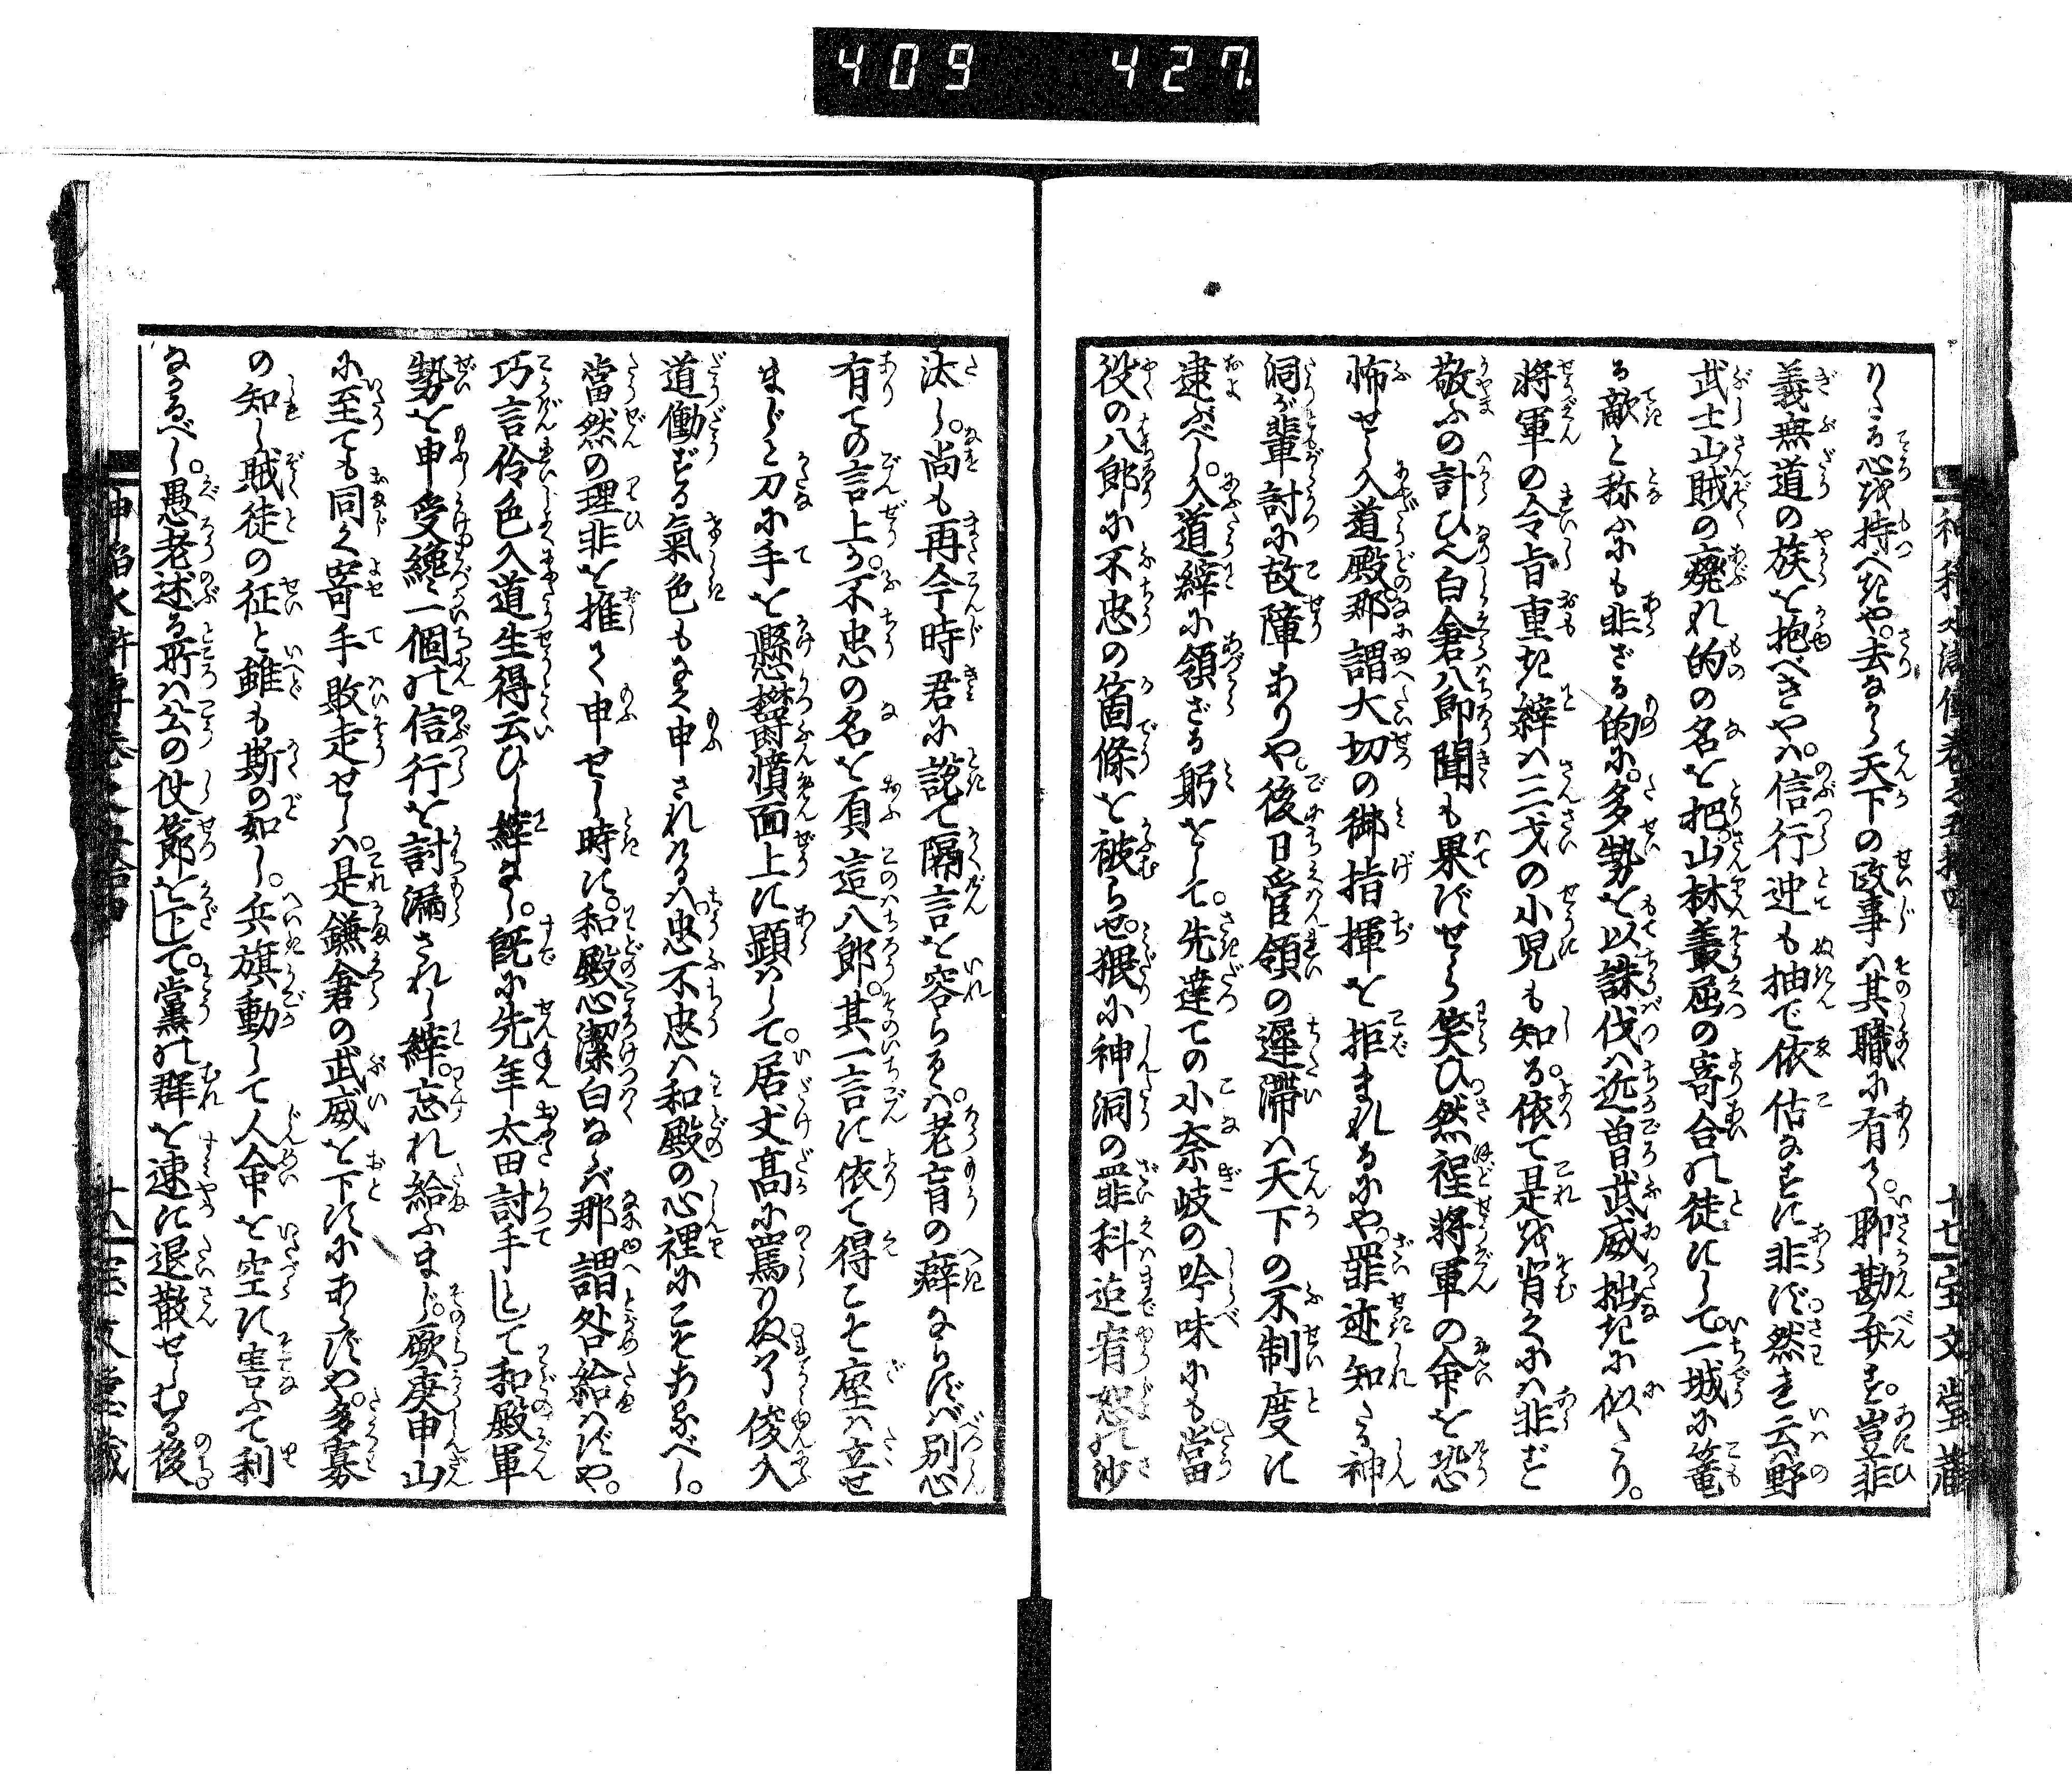 409 427
りくる心を持べきや。去ながら天下の政事ハ其職に有て。聊勘弁せよ。豈非
義無道の族を抱べきやハ。信行迚も抽で依估なすに非ず。然と云バ野
武士山賊の癈れ的の名を把。山林叢屈の寄合の徒にして。一城に篭
る敵と称ふにも非ざる的に。多勢を以誅伐ハ近曽武威拙きに似たり。
将軍の令旨重き縡ハ三才の小児も知る。依て是を背くにハ非ず
敬ふの計ひ也。白倉八郎聞も果ずせら笑ひ然程将軍の命を恐
怖せし入道殿。那謂大切の御指揮を拒まれるにや。罪迹知たる神
洞が輩討に故障ありや。後日管領の遅滞ハ天下の不制度に
逮ぶべし。入道縡に領ざる躬をして。先達ての小奈岐の吟味にも。當
役の八郎に不忠の箇條を被らせ。猥に神洞の罪科迄宥恕の沙
汰し。尚も再今時君に説て隔言を容らるゝハ。老盲の癖ならずバ別心
有ての言上か。不忠の名を負這八郎。其一言に依て得こそ座ハ立せ
まじと刀に手を懸欝憤面上に顕ハして。居丈高に罵りぬ。了俊入
道働ずる氣色もなく申されけるハ。忠不忠ハ和殿の心裡にこそあるべし。
當然の理非を推て申せし時に。和殿心潔白ならバ那謂咎給ハずや。
巧言伶色入道生得云ひし縡なし。既に先年太田討手として和殿軍
勢を申受纔一個の信行を討漏されし縡。忘れ給ふまじ。厥庚申山
に至ても同く寄手敗走せしハ。是鎌倉の武威を下すにあらずや。多寡
の知し賊徒の征と雖も斯の如し。兵旗動して人命を空に害ふて利
なかるべし。愚老述る所ハ公の仗節を下して。黨の群を速に退散せしむる後
十七 宝文堂藏
十八 宝文堂藏